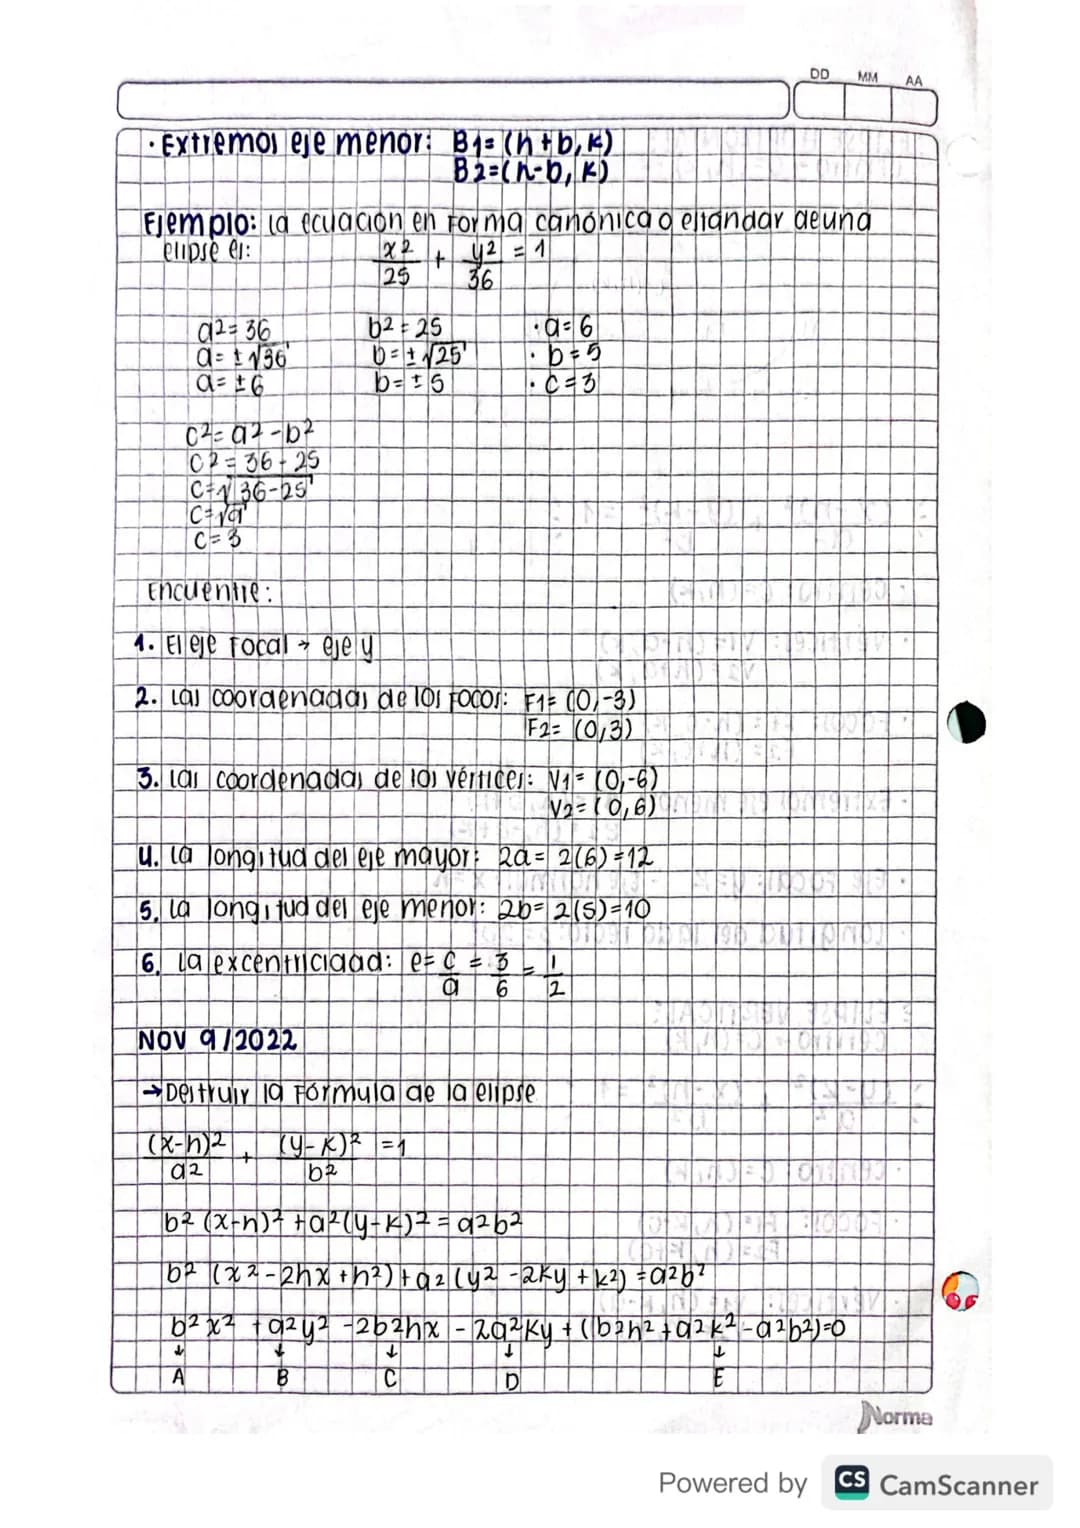 DD MM AA
· Extremos eje menor: B1= (h+b, k)
B2=(h-b, k)
Ejemplo: la ecuación en forma canónica o estándar de una
elipse es: x2/25 + y2/36 = 1
a2= 36 b2 = 25 · a= 6
a= ±√36 b= ±√25 · b= 5
a= ±6 b= ±5 · c= 3
c2= a2 -b2
c2 = 36 - 25
c=√36-25
c=√9
c= 3
Encuentre:
1. El eje focal → eje y
2. las coordenadas de los focos: F1= (0,-3)
F2= (0,3)
3. las coordenadas de los vértices: V1= (0,-6)
V2= (0,6)
4. la longitud del eje mayor: 2a= 2(6)=12
5. la longitud del eje menor: 2b= 2(5)=10
6. la excentricidad: e= c/a = 3/6 = 1/2
NOV 9/2022
→Destruir la fórmula de la elipse
(x-h)2/a2 + (y-k)2/b2 =1
b2 (x-h)2 +a2(y-k)2 = a2b2
b2 (x2-2hx +h2)+a2 (y2 -2ky +k2) =a2b2
b2x2 +a2y2 -2b2hx - 2a2ky + (b2h2+a2k2-a2b2)=0
↓ ↓ ↓ ↓ ↓
A B C D E
Norma
Powered by CS CamScanner